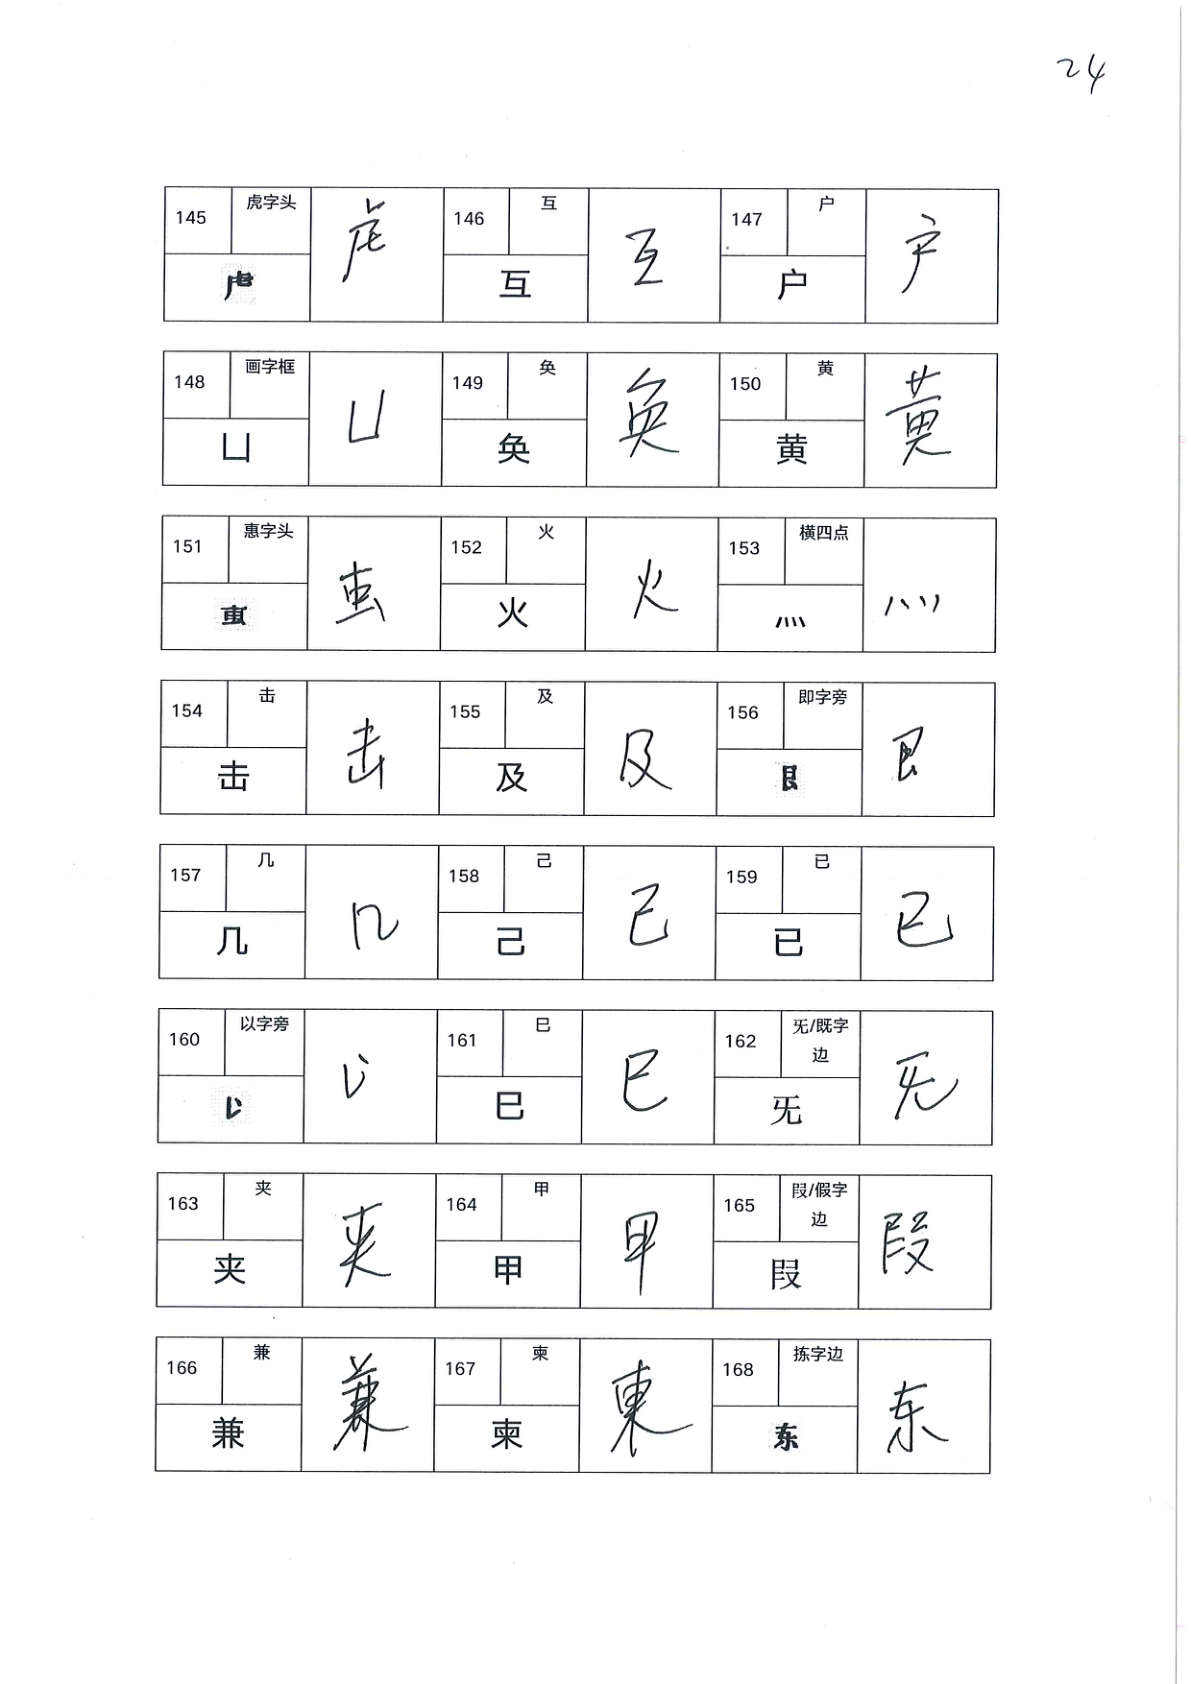 24
145 虎字头 虍 146 互 互 147 户 户
虍 互 户
148 画字框 凵 149 奂 奂 150 黄 黄
凵 奂 黄
151 惠字头 152 火 火 153 横四点 灬
火 灬
154 击 击 155 及 及 156 即字旁
击 及
157 几 几 158 己 己 159 已 已
几 己 已
160 以字旁 161 巳 巳 162 旡/既字边 旡
巳 旡
163 夹 夹 164 甲 甲 165 叚/假字边 叚
夹 甲 叚
166 兼 兼 167 柬 柬 168 拣字边
兼 柬